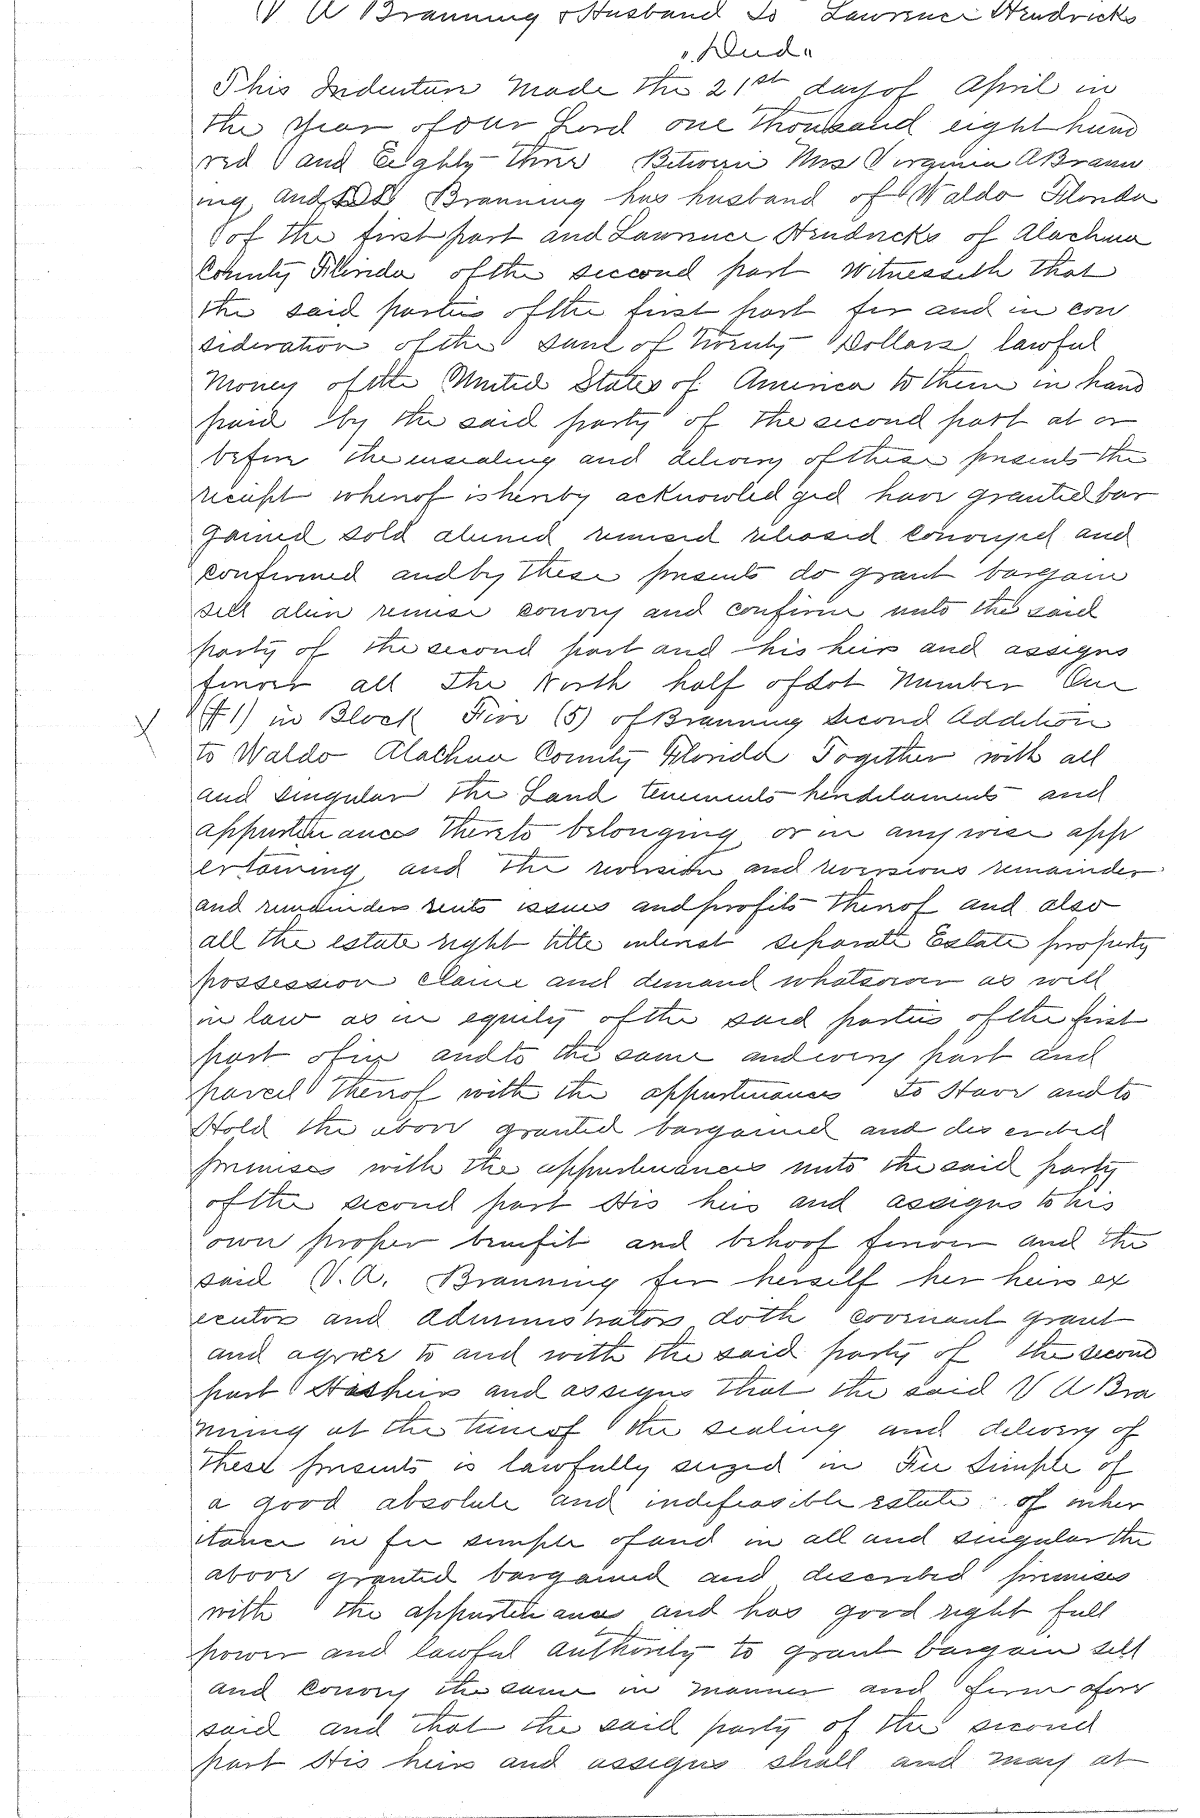 V A Branning & Husband To Lawrence Hendricks
"Deed"
This Indenture Made the 21st day of April in
the Year of our Lord one thousand eight hund
red and Eighty-three Between Mrs Virginia A Brann
ing and Branning her husband of Waldo Florida
of the first part and Lawrence Hendricks of Alachua
County Florida of the second part Witnesseth that
the said parties of the first part for and in con
sideration of the sum of Twenty Dollars lawful
Money of the United States of America to them in hand
paid by the said party of the second part at or
before the ensealing and delivery of these presents the
receipt whereof is hereby acknowledged have granted bar
gained sold aliened remised released conveyed and
confirmed and by these presents do grant bargain
sell alien remise convey and confirm unto the said
party of the second part and his heirs and assigns
forever all The North half of Lot Number One
(#1) in Block Five (5) of Branning Second Addition
to Waldo Alachua County Florida Together with all
and singular the Land tenements hereditaments and
appurtenances thereto belonging or in any wise app
ertaining and the reversion and reversions remainder
and remainders rents issues and profits thereof and also
all the estate right title interest separate Estate property
possession claim and demand whatsoever as well
in law as in equity of the said parties of the first
part of in and to the same and every part and
parcel thereof with the appurtenances To Have and to
Hold the above granted bargained and described
premises with the appurtenances unto the said party
of the second part His heirs and assigns to his
own proper benefit and behoof forever and the
said V. A. Branning for herself her heirs ex
ecutors and Administrators doth covenant grant
and agree to and with the said party of the second
part His heirs and assigns that the said V A Bra
nning at the time of the sealing and delivery of
these presents is lawfully seized in Fee Simple of
a good absolute and indefeasible estate of inher
itance in fee simple of and in all and singular the
above granted bargained and described premises
with the appurtenances and has good right full
power and lawful authority to grant bargain sell
and convey the same in manner and form afore
said and that the said party of the second
part His heirs and assigns shall and may at